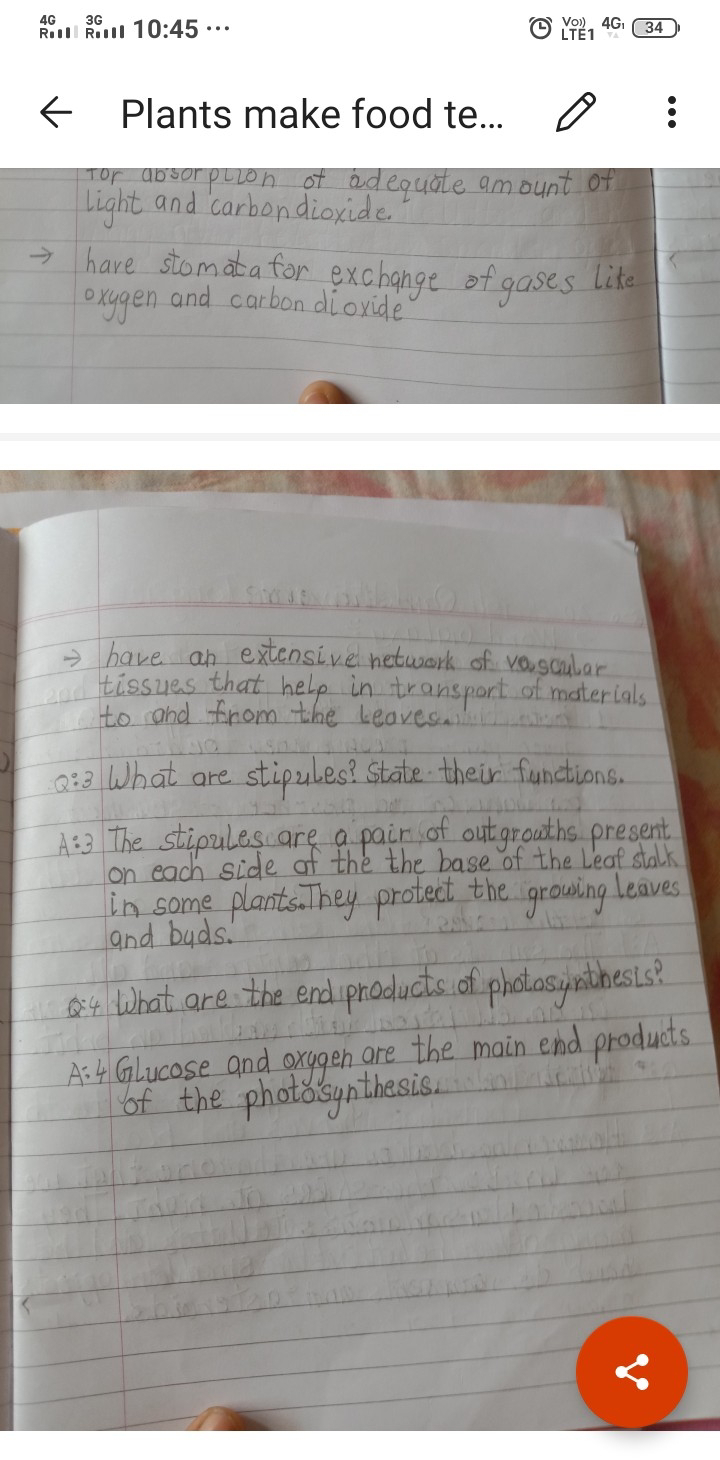 4G
R
3G
R
10:45 ...
Vo))
LTE1
4G
34
Plants make food te...
for absorption of adequate amount of
light and carbondioxide.
→ have stomata for exchange of gases like
oxygen and carbon dioxide
→ have an extensive network of vascular
tissues that help in transport of materials
to and from the leaves.
Q:3 What are stipules? State their functions.
A:3 The stipules are a pair of outgrowths present
on each side of the the base of the leaf stalk
in some plants. They protect the growing leaves
and buds.
Q:4 What are the end products of photosynthesis?
A:4 Glucose and oxygen are the main end products
of the photosynthesis.